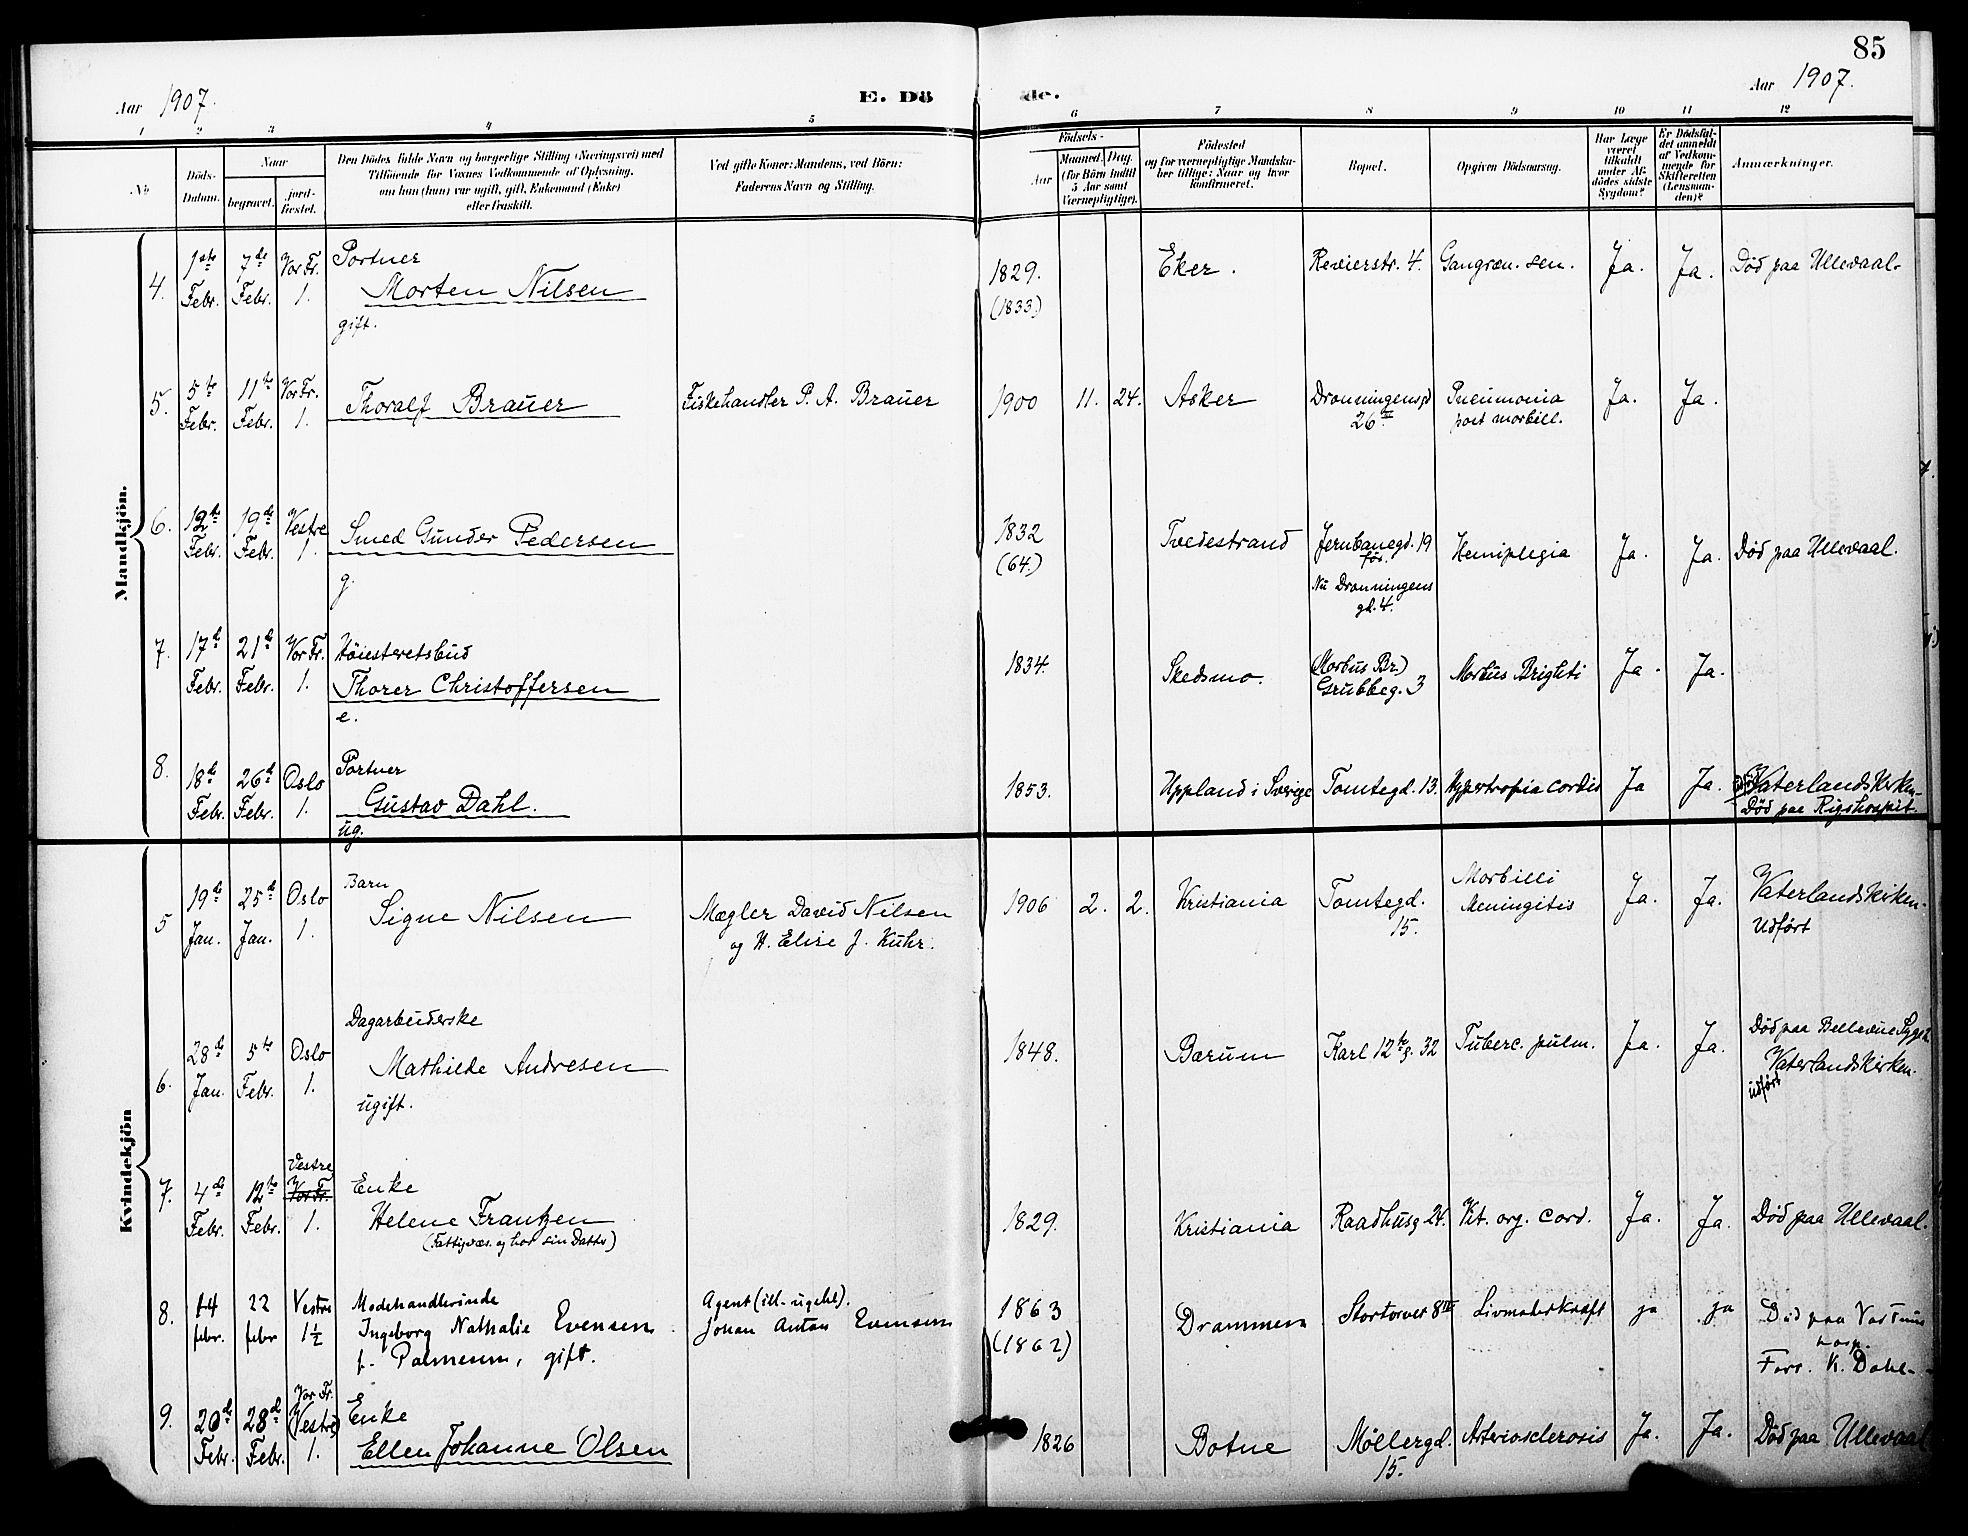 85
Aar 1907.
E. Dö
de.
Aar 1907.
1 2 3 4 5 6 7 8 9 10 11 12
No
Döds-
Datum.
Naar
begravet.
jord-
fæstet.
Den Dödes fulde Navn og borgerlige Stilling (Næringsvei) med
Tilföiende for Voxnes Vedkommende af Oplysning,
om han (hun) var ugift, gift, Enkemand (Enke)
eller fraskilt.
Ved gifte Koner: Mandens, ved Börn:
Faderens Navn og Stilling.
Födsels-
Aar
Maaned. Dag.
(for Börn indtil
5 Aar samt
Værnepligtige).
Födested
og for værnepligtige Mandska-
ber tillige: Naar og hvor
konfirmeret.
Bopæl.
Opgiven Dödsaarsag.
Har Læge
været
tilkaldt
under Af-
dödes sidste
Sygdom?
Er Dödsfal-
det anmeldt
af Vedkom-
mende for
Skifteretten
(Lensman-
den)?
Anmærkninger.
Mandkjön.
4.
1ste
Febr.
7de
Febr.
Vor Fr.
1.
Portner
Morten Nilsen
gift.
1829.
(1833.)
Eker.
Revierstr. 4.
Gangræn. sen.
Ja.
Ja.
Död paa Ullevaal.
5.
5te
Febr.
11te
Febr.
Vor Fr.
1.
Thoralf Brauer
Fiskehandler P. A. Brauer
1900
11.
24.
Asker
Dronningensgd.
26 III
Pneumonia
post morbill.
Ja.
Ja.
6.
12te
Febr.
19de
Febr.
Vestre
1.
Smed Gunder Pedersen
g.
1832
(64.)
Tvedestrand
Jernbanegd. 19
för.
Nu Dronningens
gd. 4.
Hemiplegia
Ja.
Ja.
Död paa Ullevaal.
7.
17de
Febr.
21de
Febr.
Vor Fr.
1.
Höiesteretsbud
Thorer Christoffersen
e.
1834.
Skedsmo.
(Morbus Br.)
Grubbeg. 3
Morbus Brighti
Ja.
Ja.
8.
18de
Febr.
26de
Febr.
Oslo
1.
Portner
Gustav Dahl.
ug.
1853.
Uppland i Sverige
Tomtegd. 13.
Hypertrofia cordis
Ja
Ja.
Vaterlandskirken
Död paa Rigshospit.
Kvindekjön
5
19de
Jan.
25de
Jan.
Oslo
1.
Barn
Signe Nilsen
Mægler David Nilsen
og H. Elise J. Kuhr.
1906
2.
2.
Kristiania
Tomtegd.
15.
Morbilli
Meningitis
Ja.
Ja.
Vaterlandskirken.
Udfört
6.
28de
Jan.
5te
Febr.
Oslo
1.
Dagarbeiderske
Mathilde Andresen
ugift.
1848.
Bærum
Karl 12te g. 32
Tuberc. pulm.
Ja.
Ja.
Död paa Bellevue Sygeh.
Vaterlandskirken.
udfört
7.
4de
Febr.
12te
Febr.
Vestre
Vor Fr.
1.
Enke
Helene Frantzen
(Fattigvæs. og hos sin Datter)
1829.
Kristiania
Raadhusg 24.
Vit. org. cord.
Ja.
Ja.
Död paa Ullevaal.
8.
14
febr.
22
febr
Vestre
1½
Modehandlerinde
Ingeborg Nathalie Evensen
f. Palmeum, gift.
Agent (ill-ugebl).
Johan Anton Evensen
1863
(1862)
Drammen
Stortorvet 8 III
Livmoderkræft
ja
ja
Död paa
hosp.
Forr. K. Dahl-
9.
20de
Febr.
28de
Febr.
Vor Fr.
(Vestre)
1.
Enke
Ellen Johanne Olsen
1826
Botne
Möllergd.
15.
Arteriosclerosis
Ja.
Ja.
Död paa Ullevaal